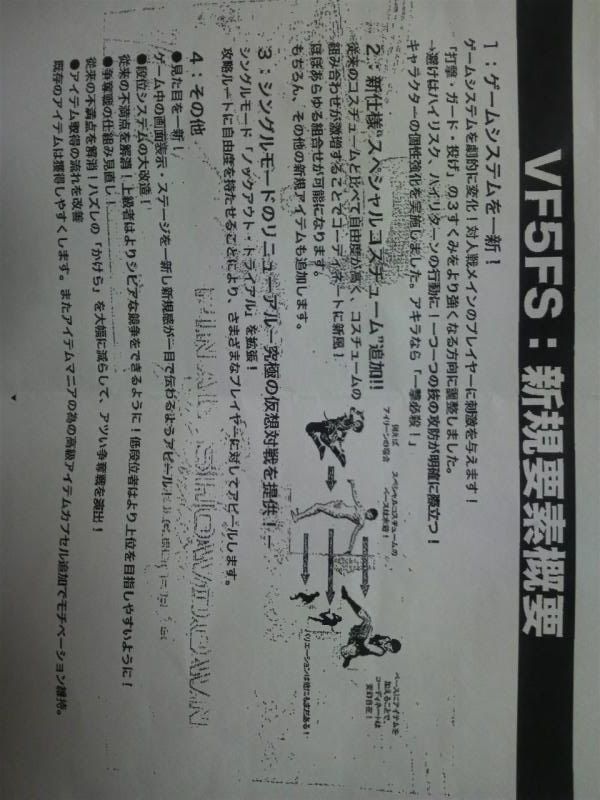 VF5FS：新規要素概要
1：ゲームシステムを一新！
ゲームシステムを劇的に変化！対人戦メインのプレイヤーに刺激を与えます！
「打撃・ガード・投げ」の3すくみをより強くなる方向に調整しました。
→避けはハイリスク、ハイリターンの行動に！一つ一つの技の攻防が明確に際立つ！
キャラクターの個性強化を実施しました。アキラなら「一撃必殺！」
2：新仕様"スペシャルコスチューム"追加!!
従来のコスチュームと比べて自由度が高く、コスチュームの
組み合わせが激増することでコーディネートに新風！
ほぼあらゆる組合せが可能になります。
もちろん、その他の新規アイテムも追加します。
例えば
アイリーンの場合
スペシャルコスチュームの
ベースは水着！
ベースにアイテムを
加えることで、
コーディネートは
変幻自在！
バリエーションは他にもまだある！
3：シングルモードのリニューアル！－究極の仮想対戦を提供！－
シングルモード「ノックアウト・トライアル」を拡張！
攻略ルートに自由度を持たせることにより、さまざまなプレイヤーに対してアピールします。
4：その他
●見た目を一新！
ゲーム中の画面表示・ステージを一新し新規感が一目で伝わるようアピール
●段位システムの大改造！
従来の不満点を解消！上級者はよりシビアな競争をできるように！低段位者はより上位を目指しやすいように！
●争奪戦の仕組み見直し！
従来の不満点を解消！ハズレの「かけら」を大幅に減らして、アツい争奪戦を演出！
●アイテム取得の流れを改善
既存のアイテムは獲得しやすくします。またアイテムマニアの為の高級アイテムカプセル追加でモチベーション維持。